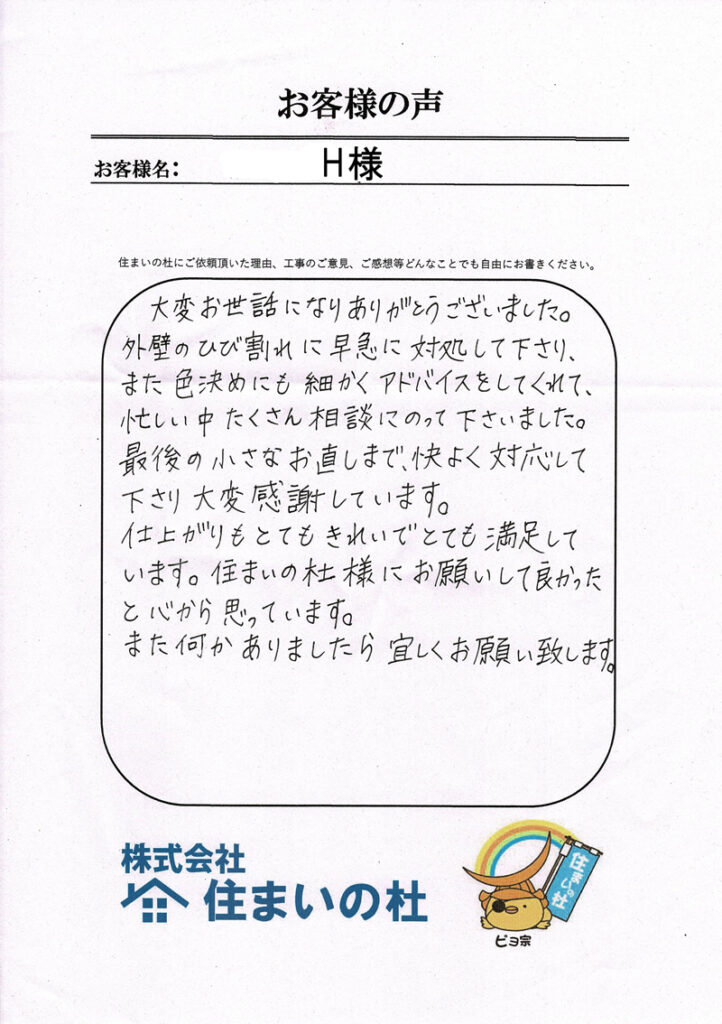 お客様の声
お客様名: H様
住まいの杜にご依頼頂いた理由、工事のご意見、ご感想等どんなことでも自由にお書きください。
大変お世話になりありがとうございました。
外壁のひび割れに早急に対処して下さり、
また色決めにも細かくアドバイスをしてくれて、
忙しい中たくさん相談にのって下さいました。
最後の小さなお直しまで、快よく対応して
下さり大変感謝しています。
仕上がりもとてもきれいでとても満足して
います。住まいの杜様にお願いして良かった
と心から思っています。
また何かありましたら宜しくお願い致します。
株式会社
住まいの杜
住まいの杜
ピヨ宗